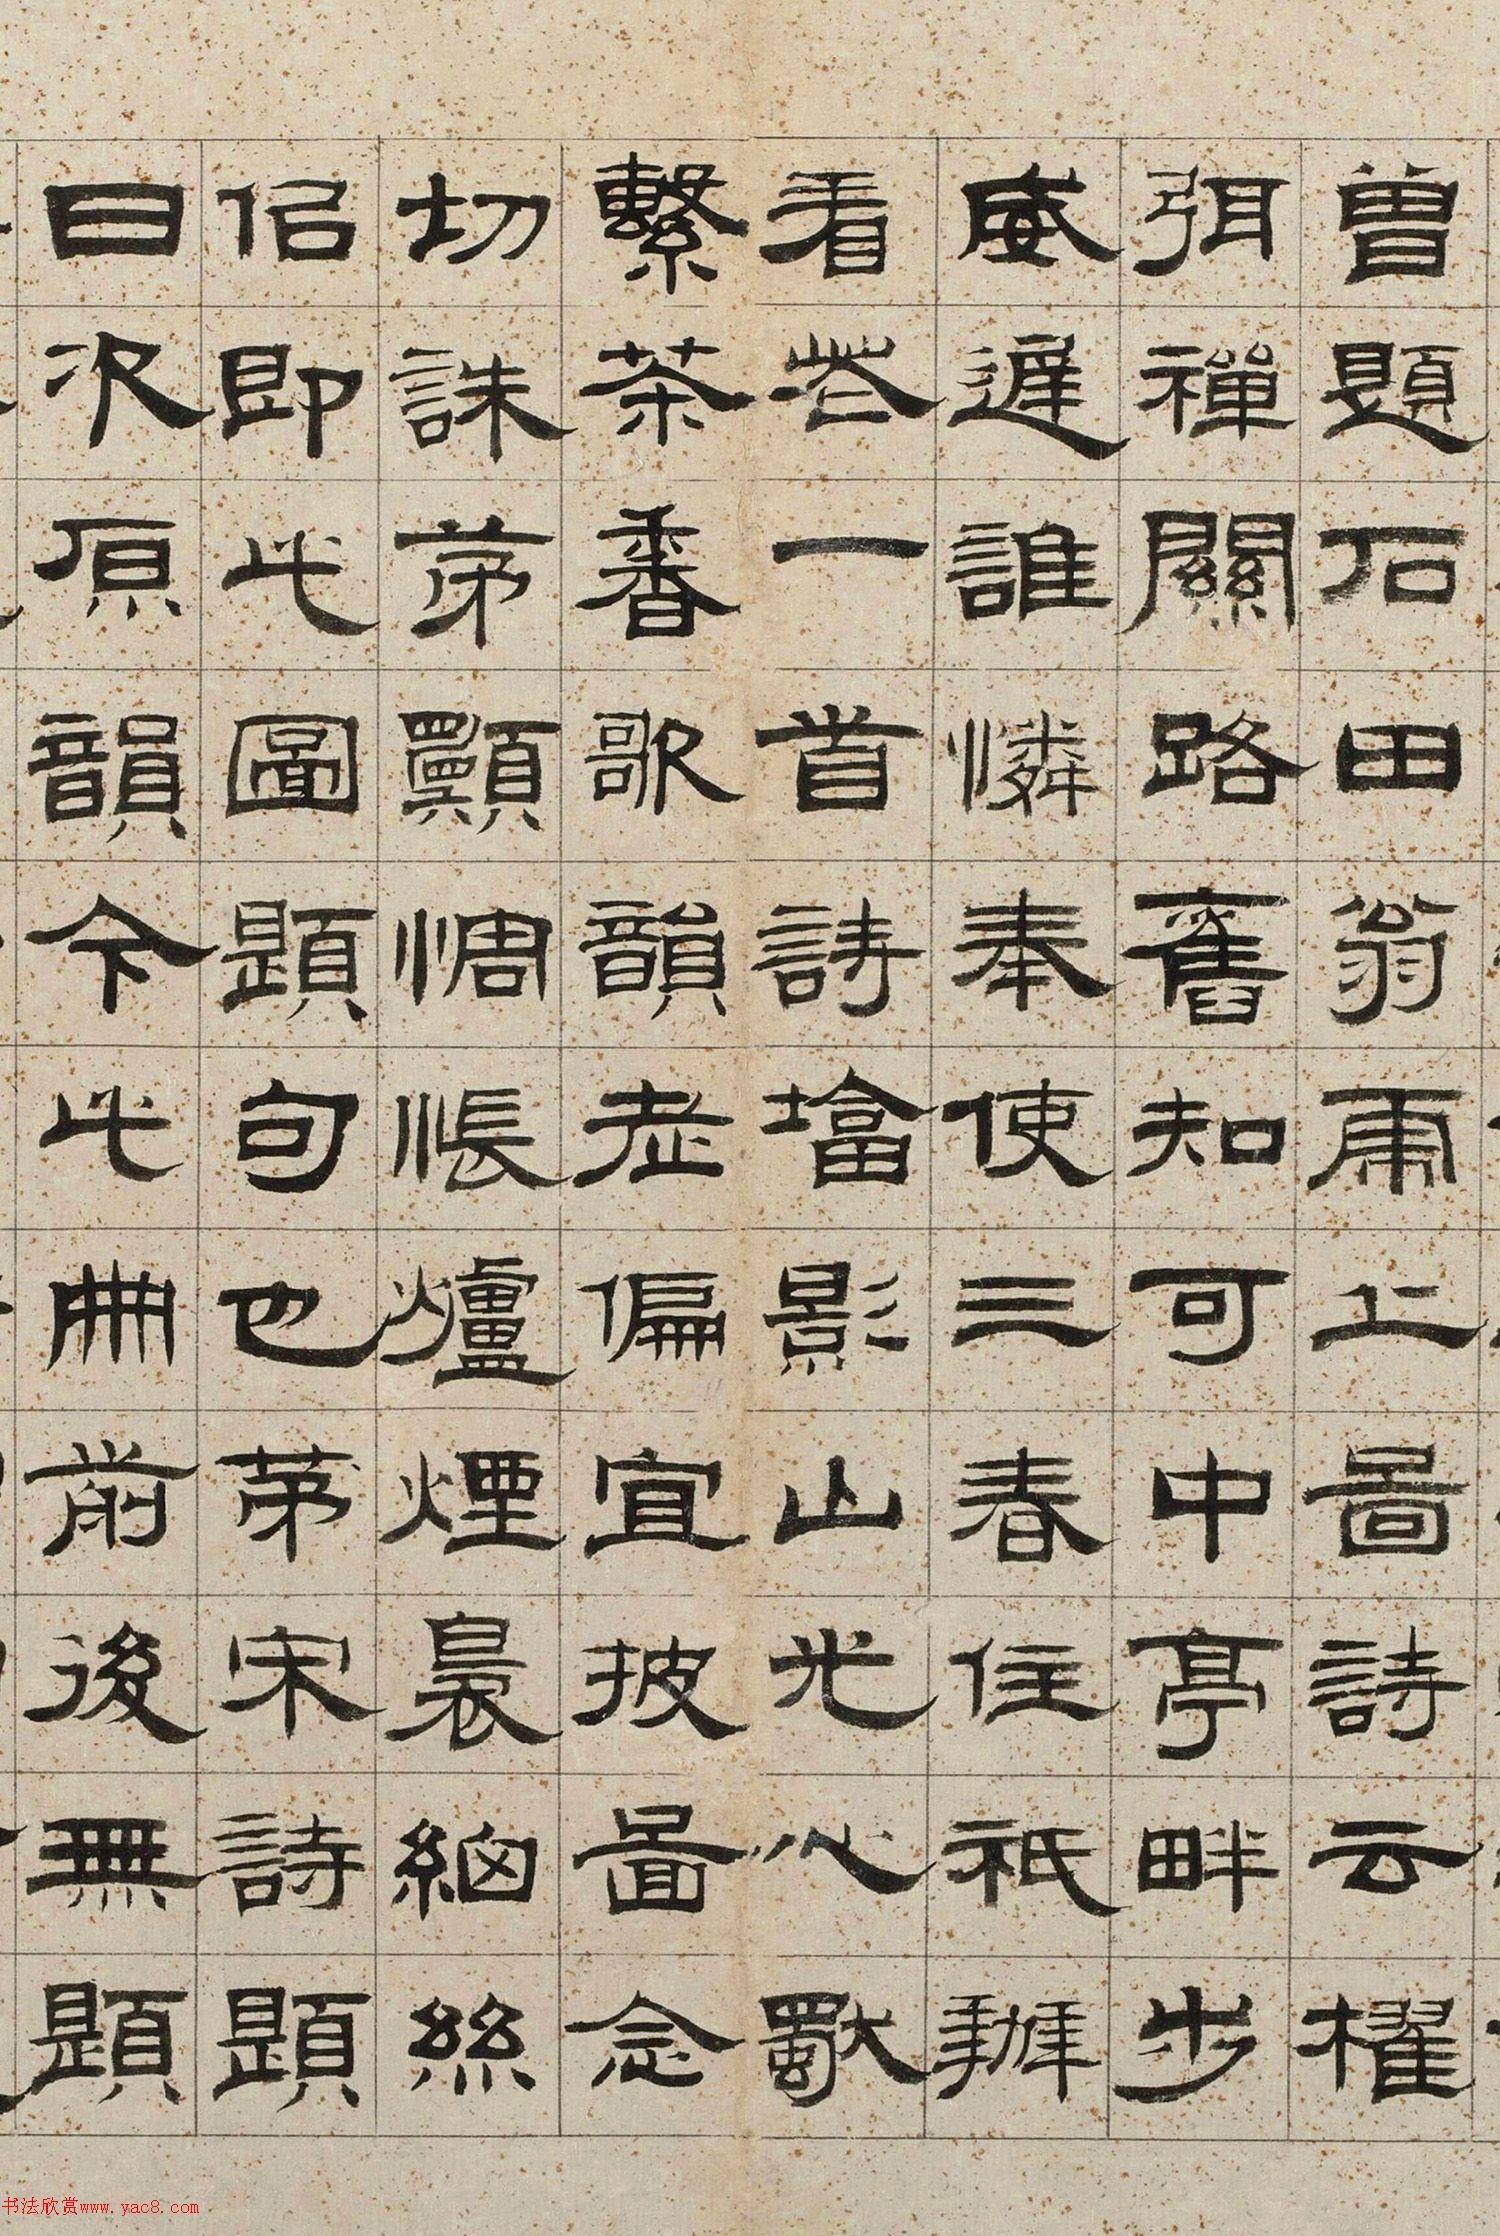 曾題石田翁虎丘圖詩云櫂
弭禪關路舊知可中亭畔步
逶遲誰憐奉使三春住祇辦
看花一首詩塔影山光心獨
繫茶香歌韻老偏宜披圖念
切誅茅願惆悵爐煙裊網絲
侶即此圖題句也茅宋詩題
曰次原韻今此冊前後無題
书法欣赏www.yac8.com